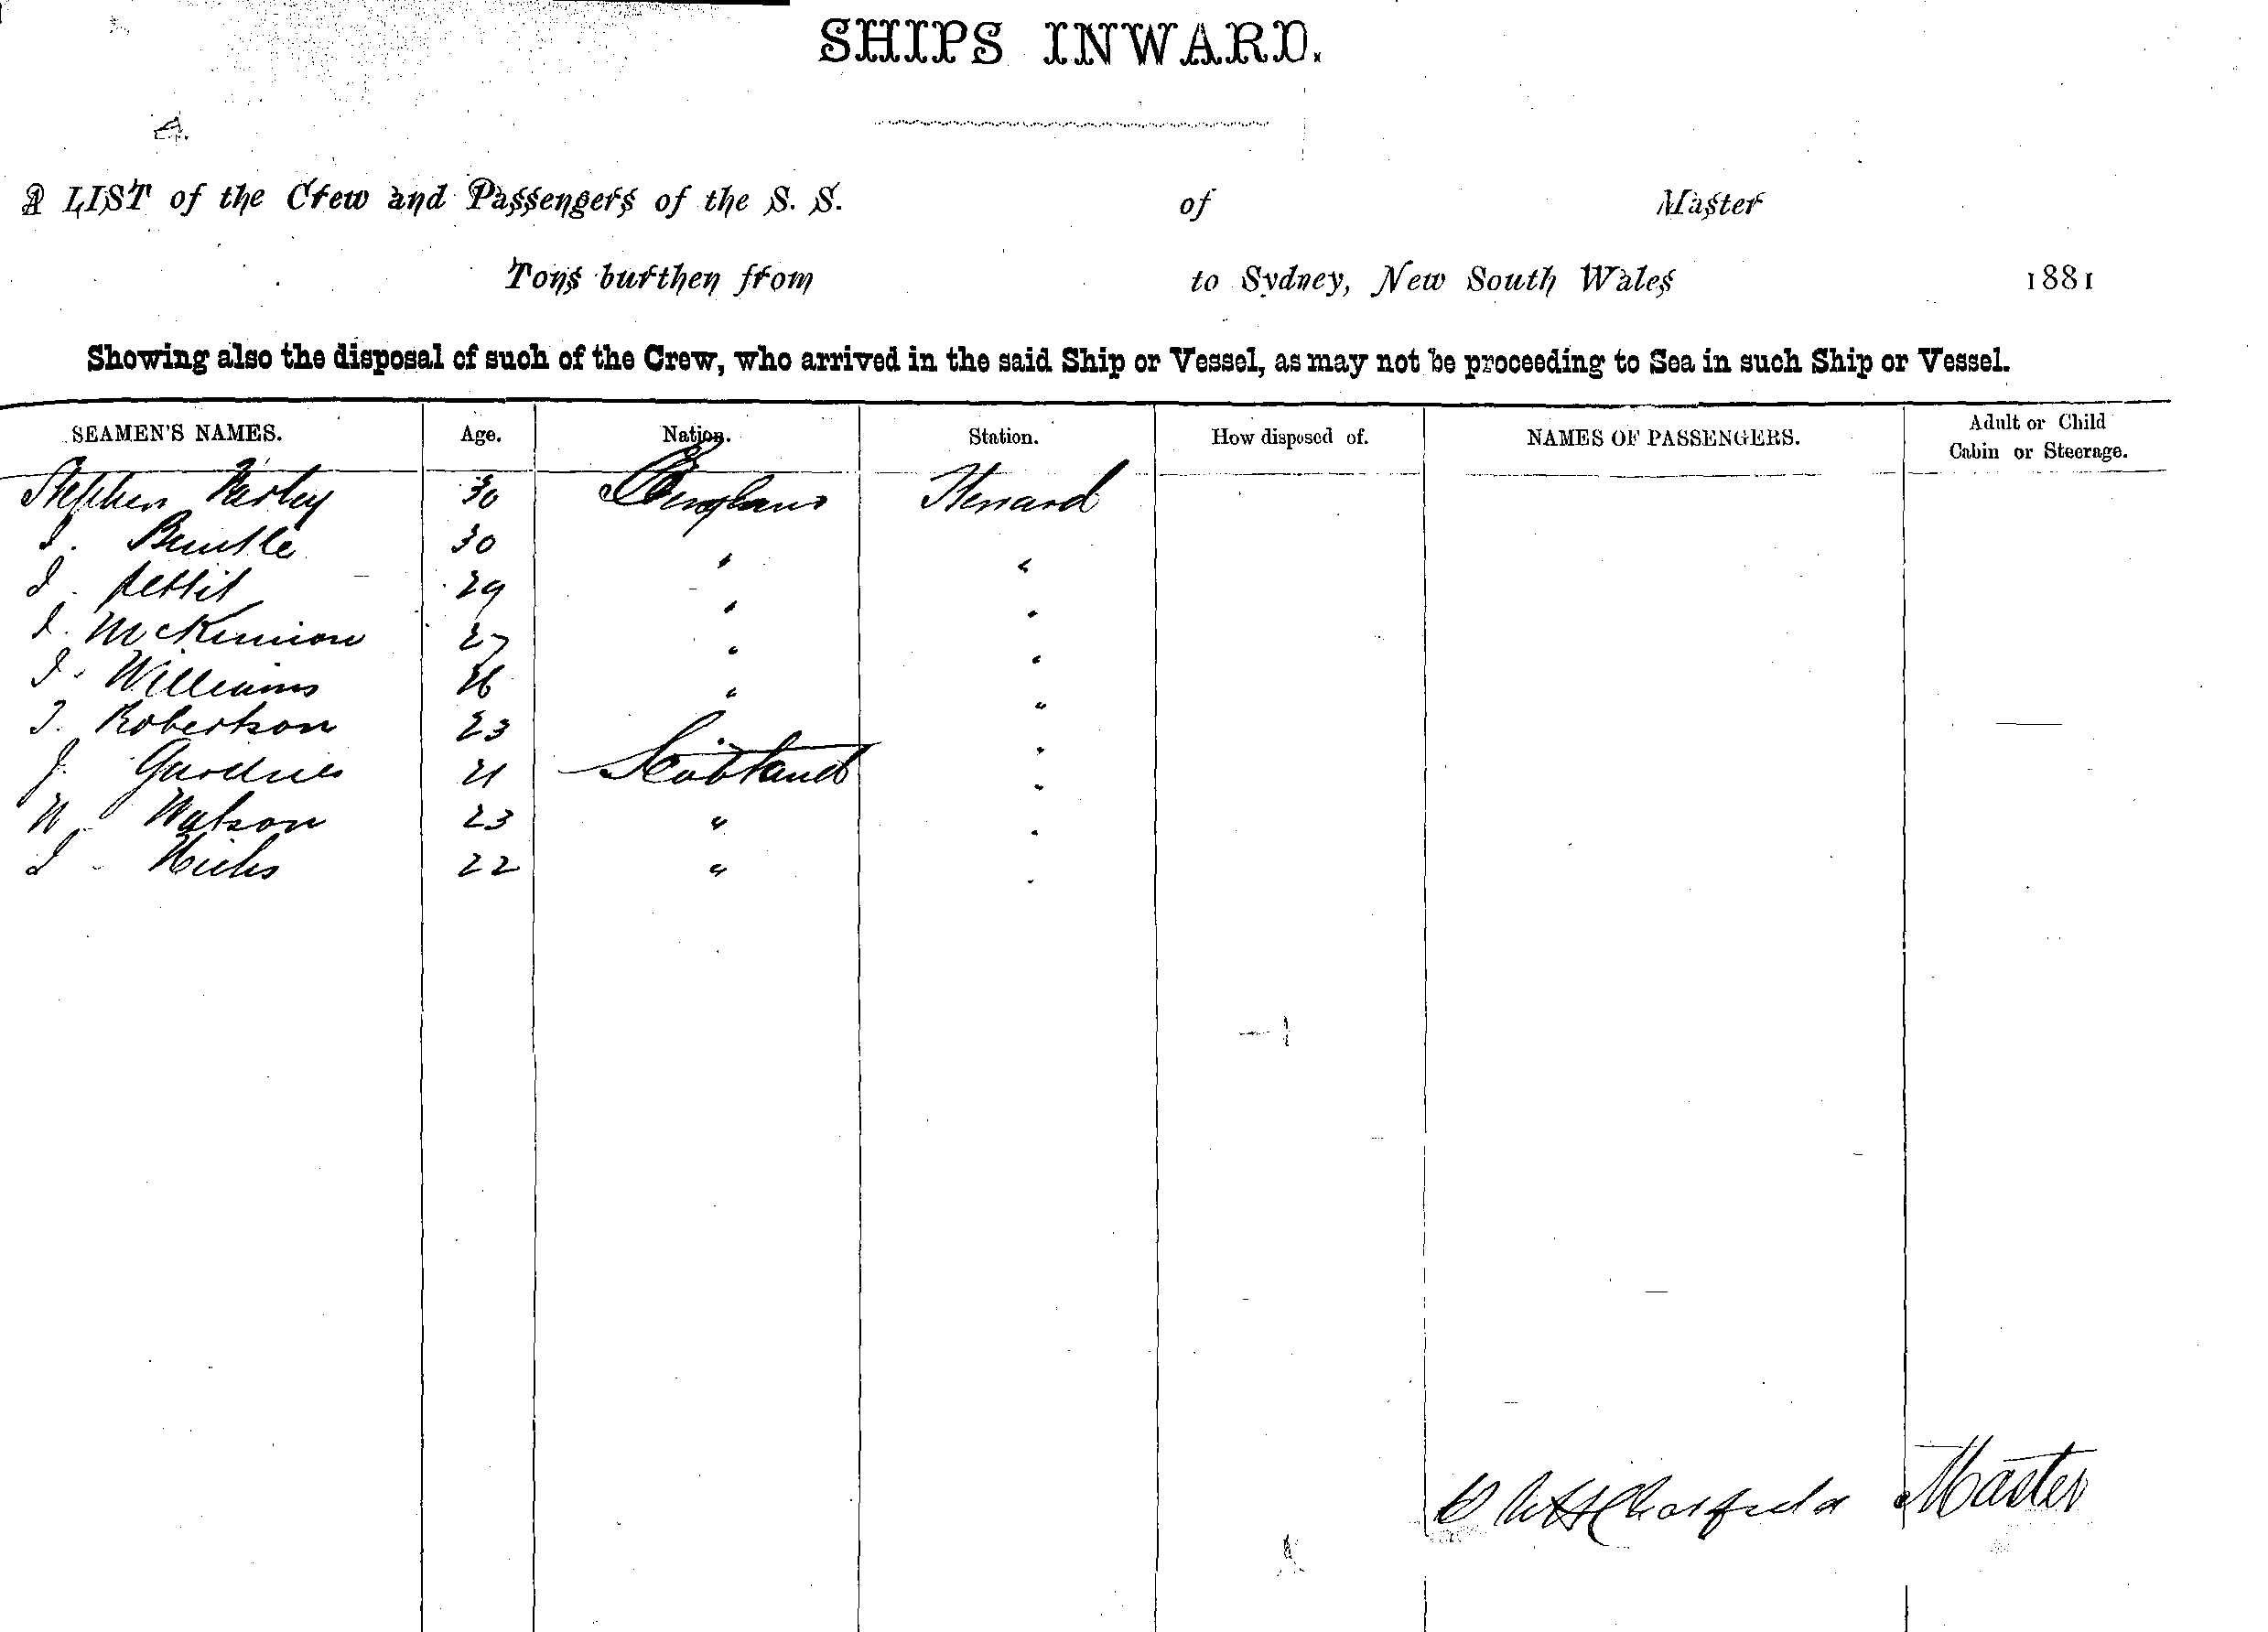 SHIPS INWARD.
A LIST of the Crew and Passengers of the S. S. of Master
Tons burthen from to Sydney, New South Wales 1881
Showing also the disposal of such of the Crew, who arrived in the said Ship or Vessel, as may not be proceeding to Sea in such Ship or Vessel.
SEAMEN'S NAMES. Age. Nation. Station. How disposed of. NAMES OF PASSENGERS. Adult or Child
Cabin or Steerage.
Stephen 30 England Steward
30 " "
Pettit 29 " "
McKinnon 27 " "
Williams 26 " "
Robertson 23 "
J. Gardner 21 Scotland "
W. Watson 23 " "
Hicks 22 " "
Master